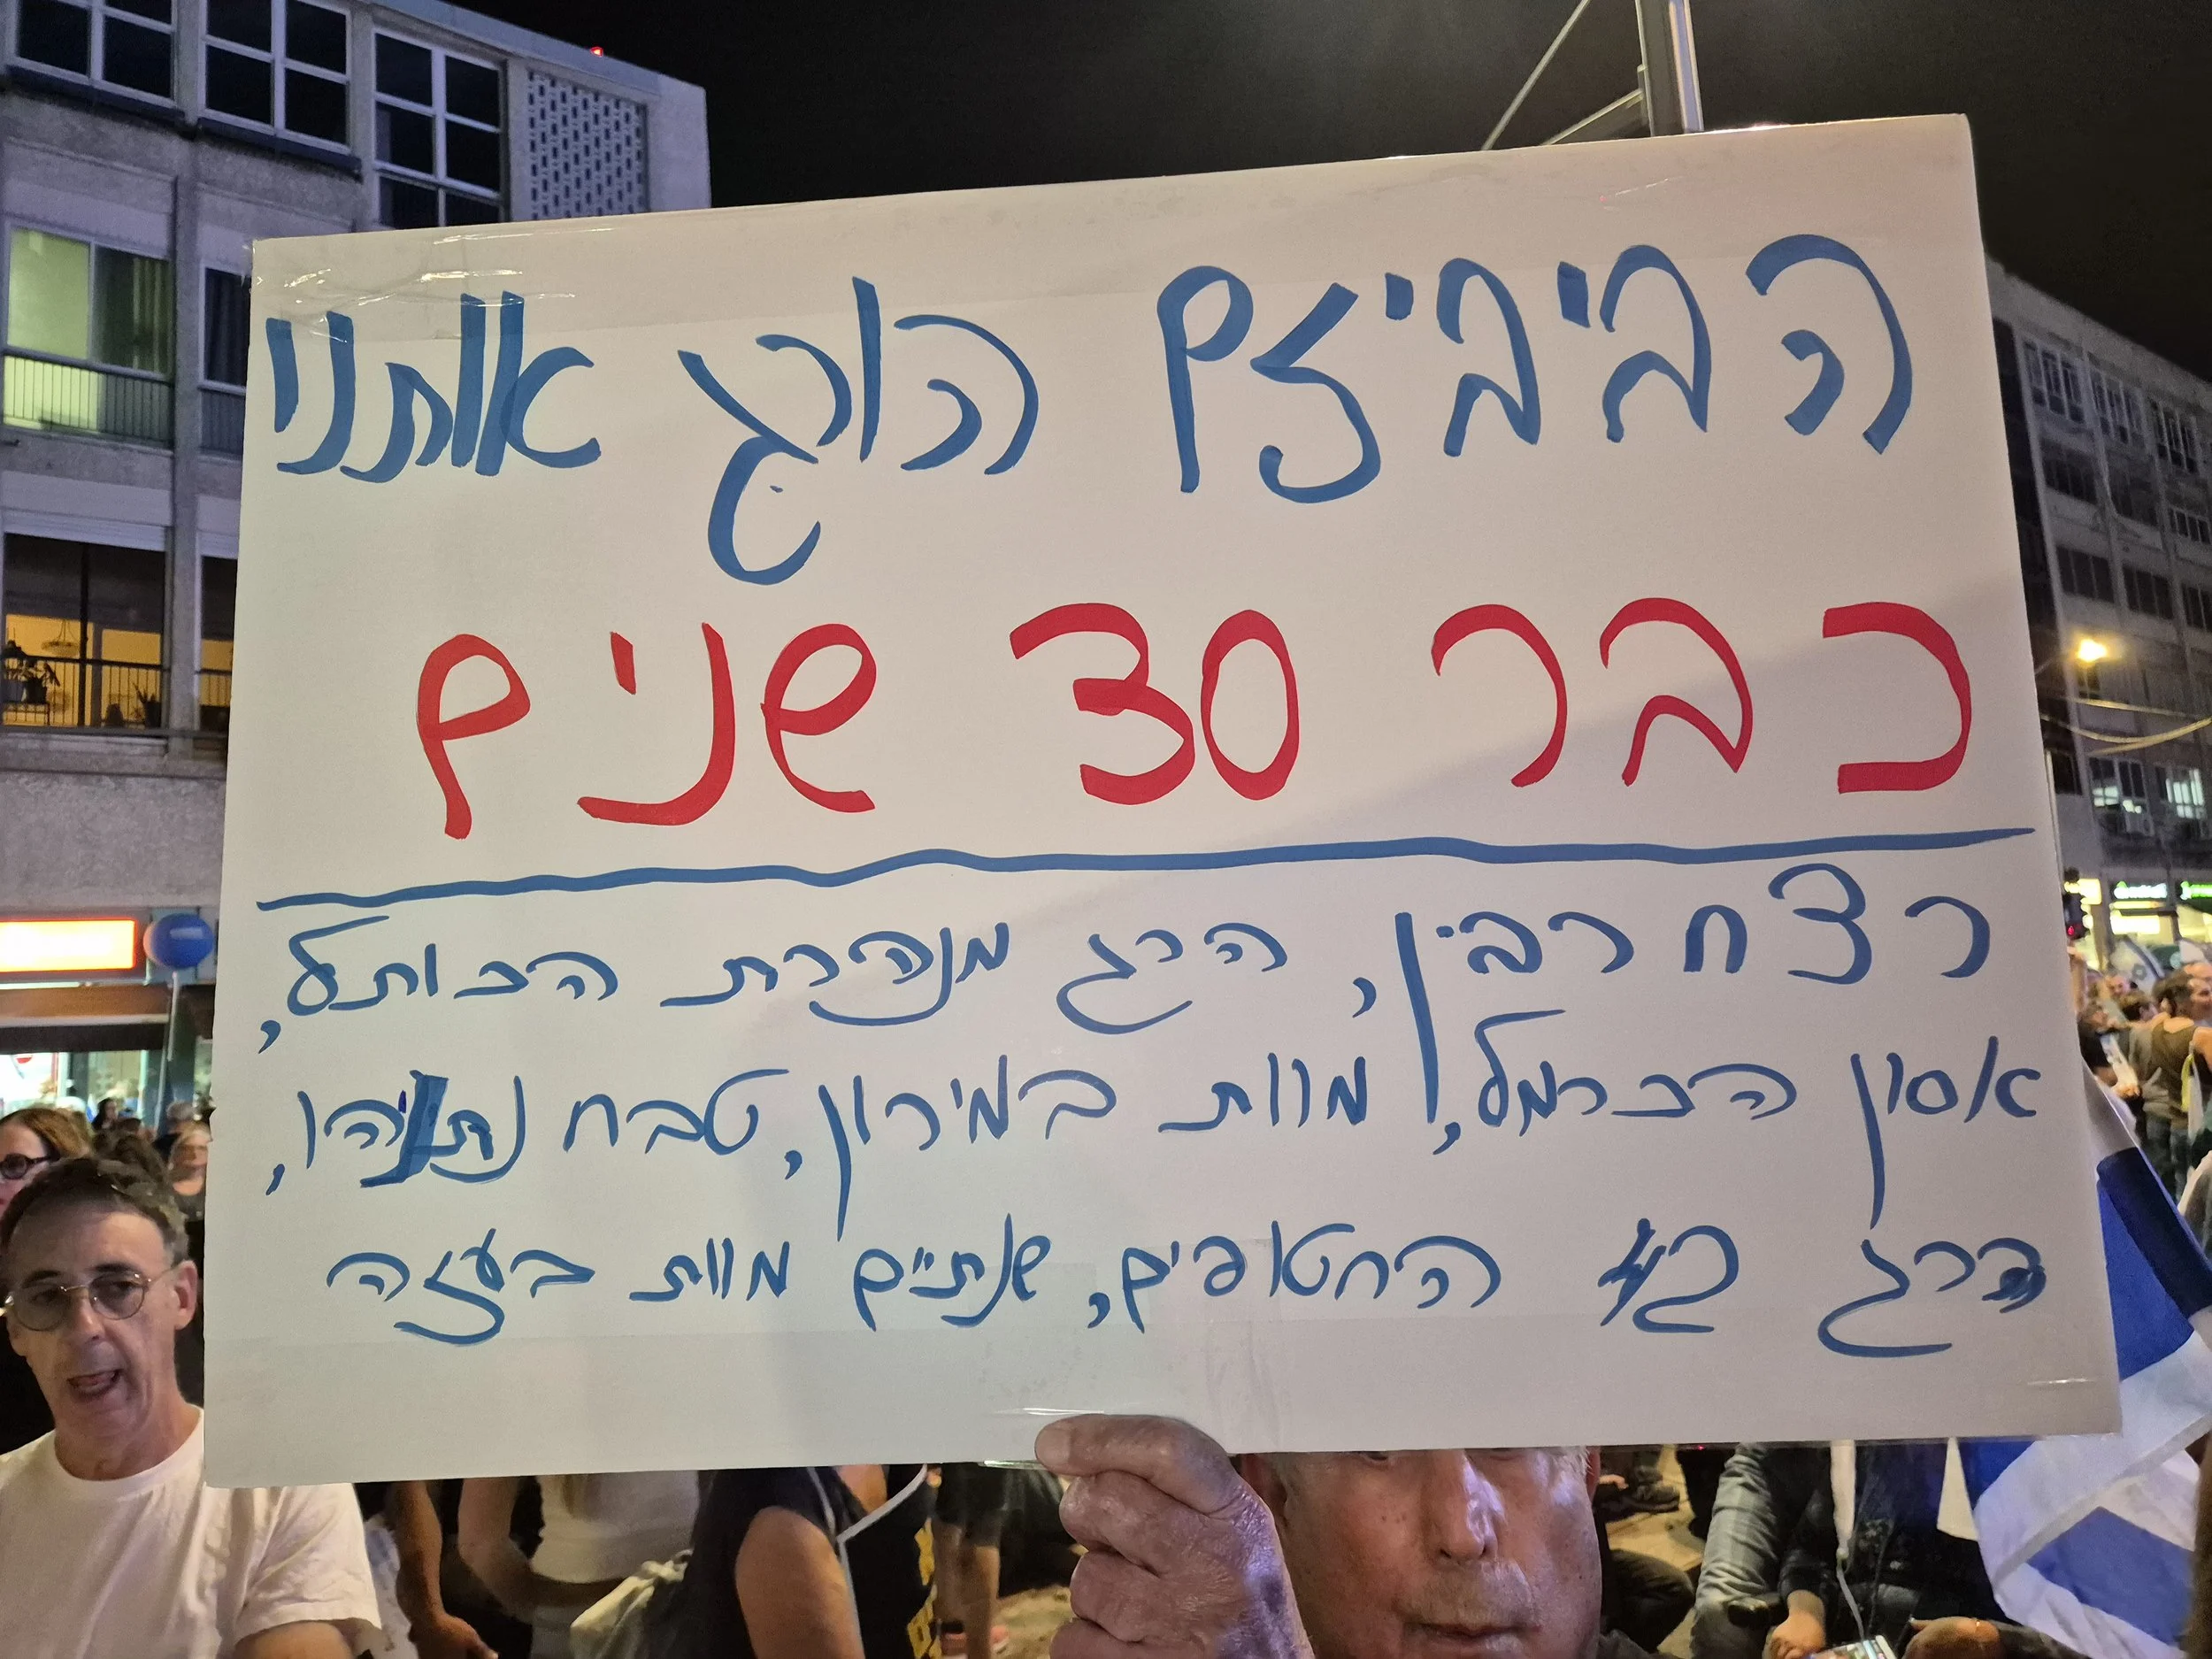 הביביזם הורג אותנו
כבר 30 שנים
רצח רבין, הרג מנהרת הכותל,
אסון הכרמל, מוות במירון, טבח נתניהו,
הרג 42 החטופים, שנתיים מוות בעזה